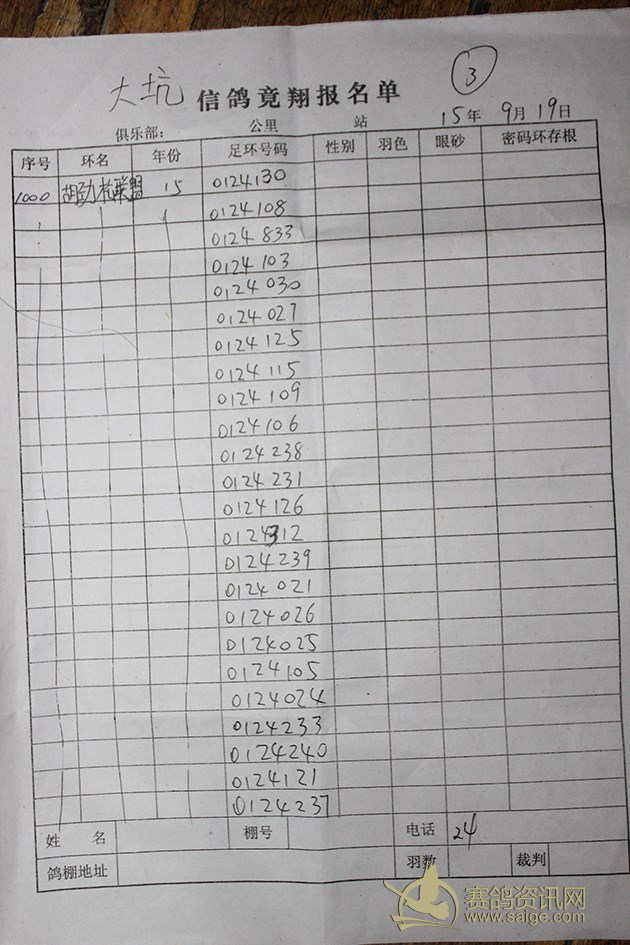 大坑 信鸽竞翔报名单 ③
俱乐部: 公里 站 15年 9月 19日
序号 环名 年份 足环号码 性别 羽色 眼砂 密码环存根
1000 胡劲松联盟 15 0124130
0124108
0124833
0124103
0124030
0124027
0124125
0124115
0124109
0124106
0124238
0124231
0124126
0124312
0124239
0124021
0124026
0124025
0124105
0124024
0124233
0124240
0124121
0124237
姓 名 棚号 电话 24
鸽棚地址 羽数 裁判
赛鸽资讯网
www.saige.com